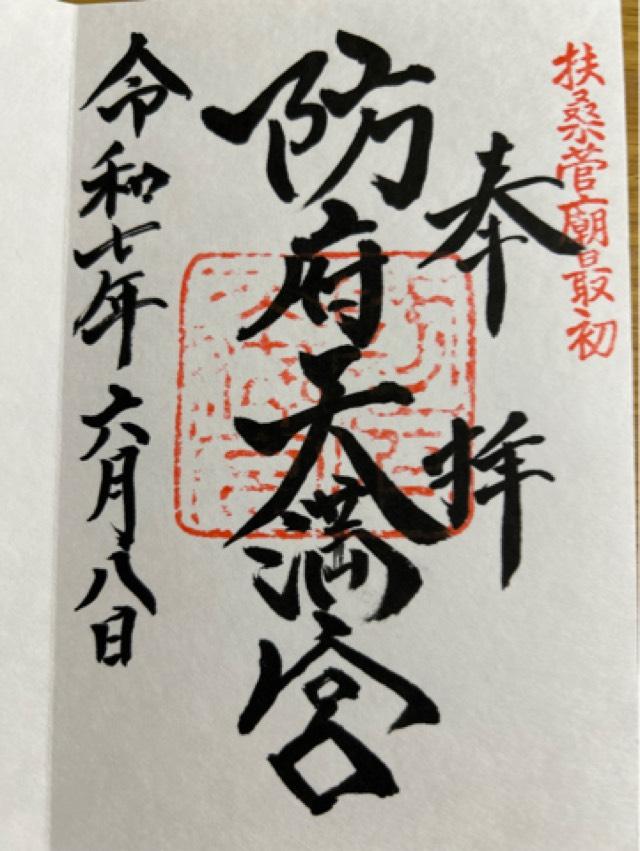 扶桑菅廟最初
奉拝
防府天満宮
令和七年六月八日